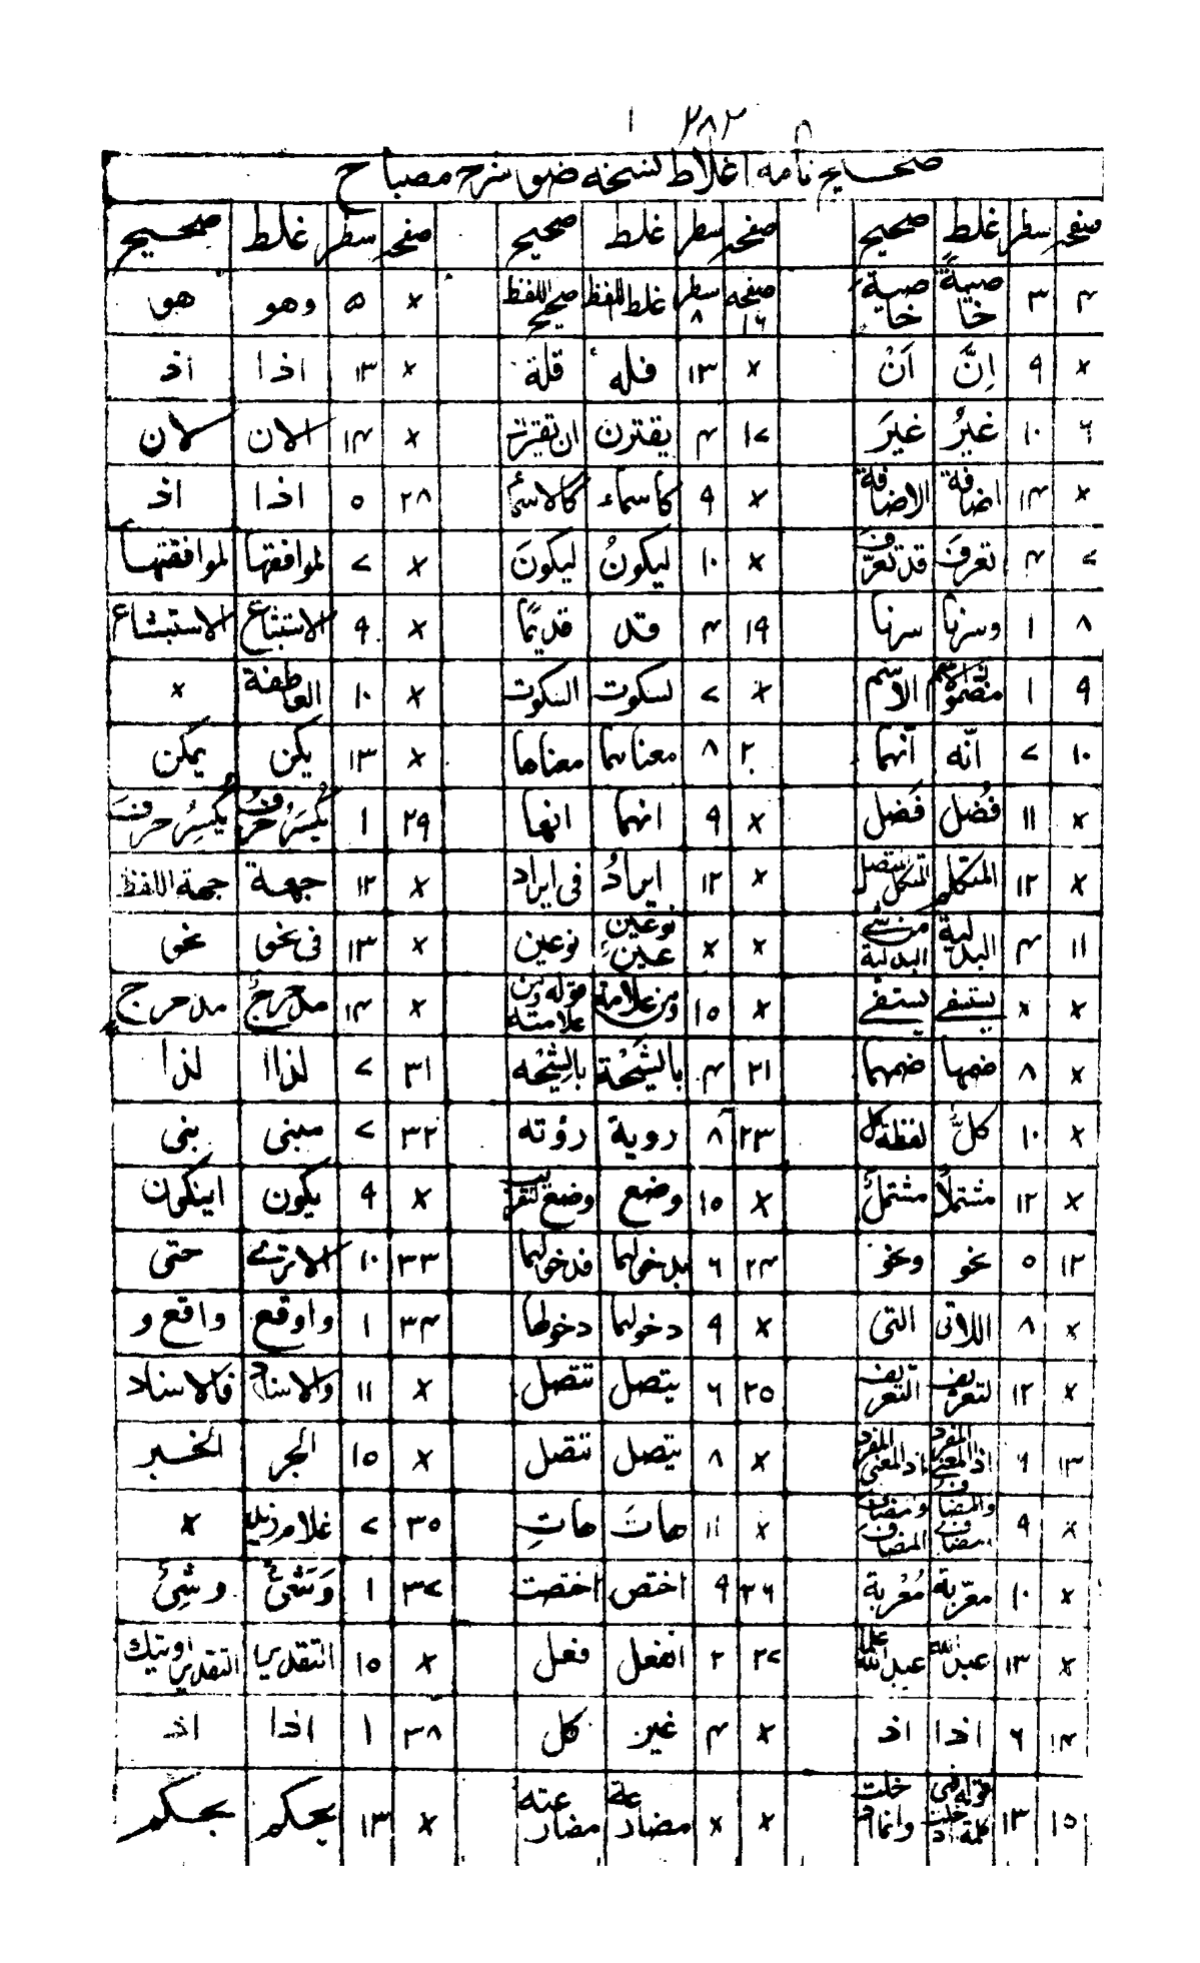 ٢٨٣
صحایح نامه اغلاط نسخه ضوء شرح مصباح
صفحه سطر غلط صحیح صفحه سطر غلط صحیح صفحه سطر غلط صحیح
٣ ٣ خاصیةً خاصیة صفحه ١٦ سطر ٨ غلط اللفظ صحیح اللفظ × ٥ وهو هو
× ٩ اِنَّ اَنْ × ١٣ قله قلة × ١٣ اذا اذ
٦ ١٠ غیرُ غیرَ ١٧ ٣ یقترن ان تقترن × ١٤ الان لان
× ١٤ اضافة الاضافة × ٩ کاسماء کالاسماء ٢٨ ٥ اذا اذ
٧ ٣ تعرف قد تعرف × ١٠ لیکونُ لیکونَ × ٧ لموافقها لموافقتها
٨ ١ وسرنا سرنا ١٩ ٣ قد قدیمًا × ٩ الاستتباع الاستبشاع
٩ ١ الاسم × ٧ لسکوت السکوت × ١٠ العاطفة ×
١٠ ٧ انّه انّهما ٢٠ ٨ معناهما معناها × ١٣ یکن یمکن
× ١١ فُضل فَضل × ٩ انهما انها ٢٩ ١ یُکسَرُ حرفُ یُکسِرُ حرفَ
× ١٢ المتکلم المتکلم متصل × ١٢ ایرادُ فی ایراد × ١٢ جهة جهة اللفظ
١١ ٣ البدلیة من شیء البدلیة × × نوعین عین نوعین × ١٣ فی نحو نحو
× × یستنفی یستفی × ١٥ ومن علامة قوله ومن علامته × ١٤ مدحرجٌ مدحرج
× ٨ ضمها ضمهما ٢١ ٣ بالشَیْحَة بالشِیْحه ٣١ ٧ لذاا لذا
× ١٠ کلّ لفظة کل ٢٣ ٨ رویة رؤته ٣٢ ٧ مبنی بنی
× ١٢ مشتملاً مشتملٌ × ١٥ وضع وضع لتقریب × ٩ یکون اینکون
١٢ ٥ نحو ونحو ٢٤ ٦ بدخولهما فدخولهما ٣٣ ١٠ الاتری حتی
× ٨ اللاتی التی × ٩ دخولهما دخولها ٣٤ ١ واوقع واقع و
× ١٢ لتعریف التعریف ٢٥ ٦ یتصل تتصل × ١١ والاسناد فالاسناد
١٣ ٦ المفرد اذ المعنی المفرد اذ المعنی × ٨ یتصل تتصل × ١٥ الجر الخبر
× ٩ والمضاف مضاف ومضاف المضاف × ١١ هاتَ هاتِ ٣٥ ٧ غلام زید ×
× ١٠ معرّبة مُعْربة ٢٦ ٩ اختص اختصت ٣٧ ١ وَشَیْءٌ وشیءٌ
× ١٣ عبدالله عبدالله علما ٢٧ ٢ انفعل فعل × ١٥ التقدیرا التقدیر اوتیک
١٤ ٦ اذا اذ × ٣ غیر کل ٣٨ ١ اذا اذ
١٥ ١٣ خلت وانما × × مضادعة مضارعته × ١٣ یحکم بحکم